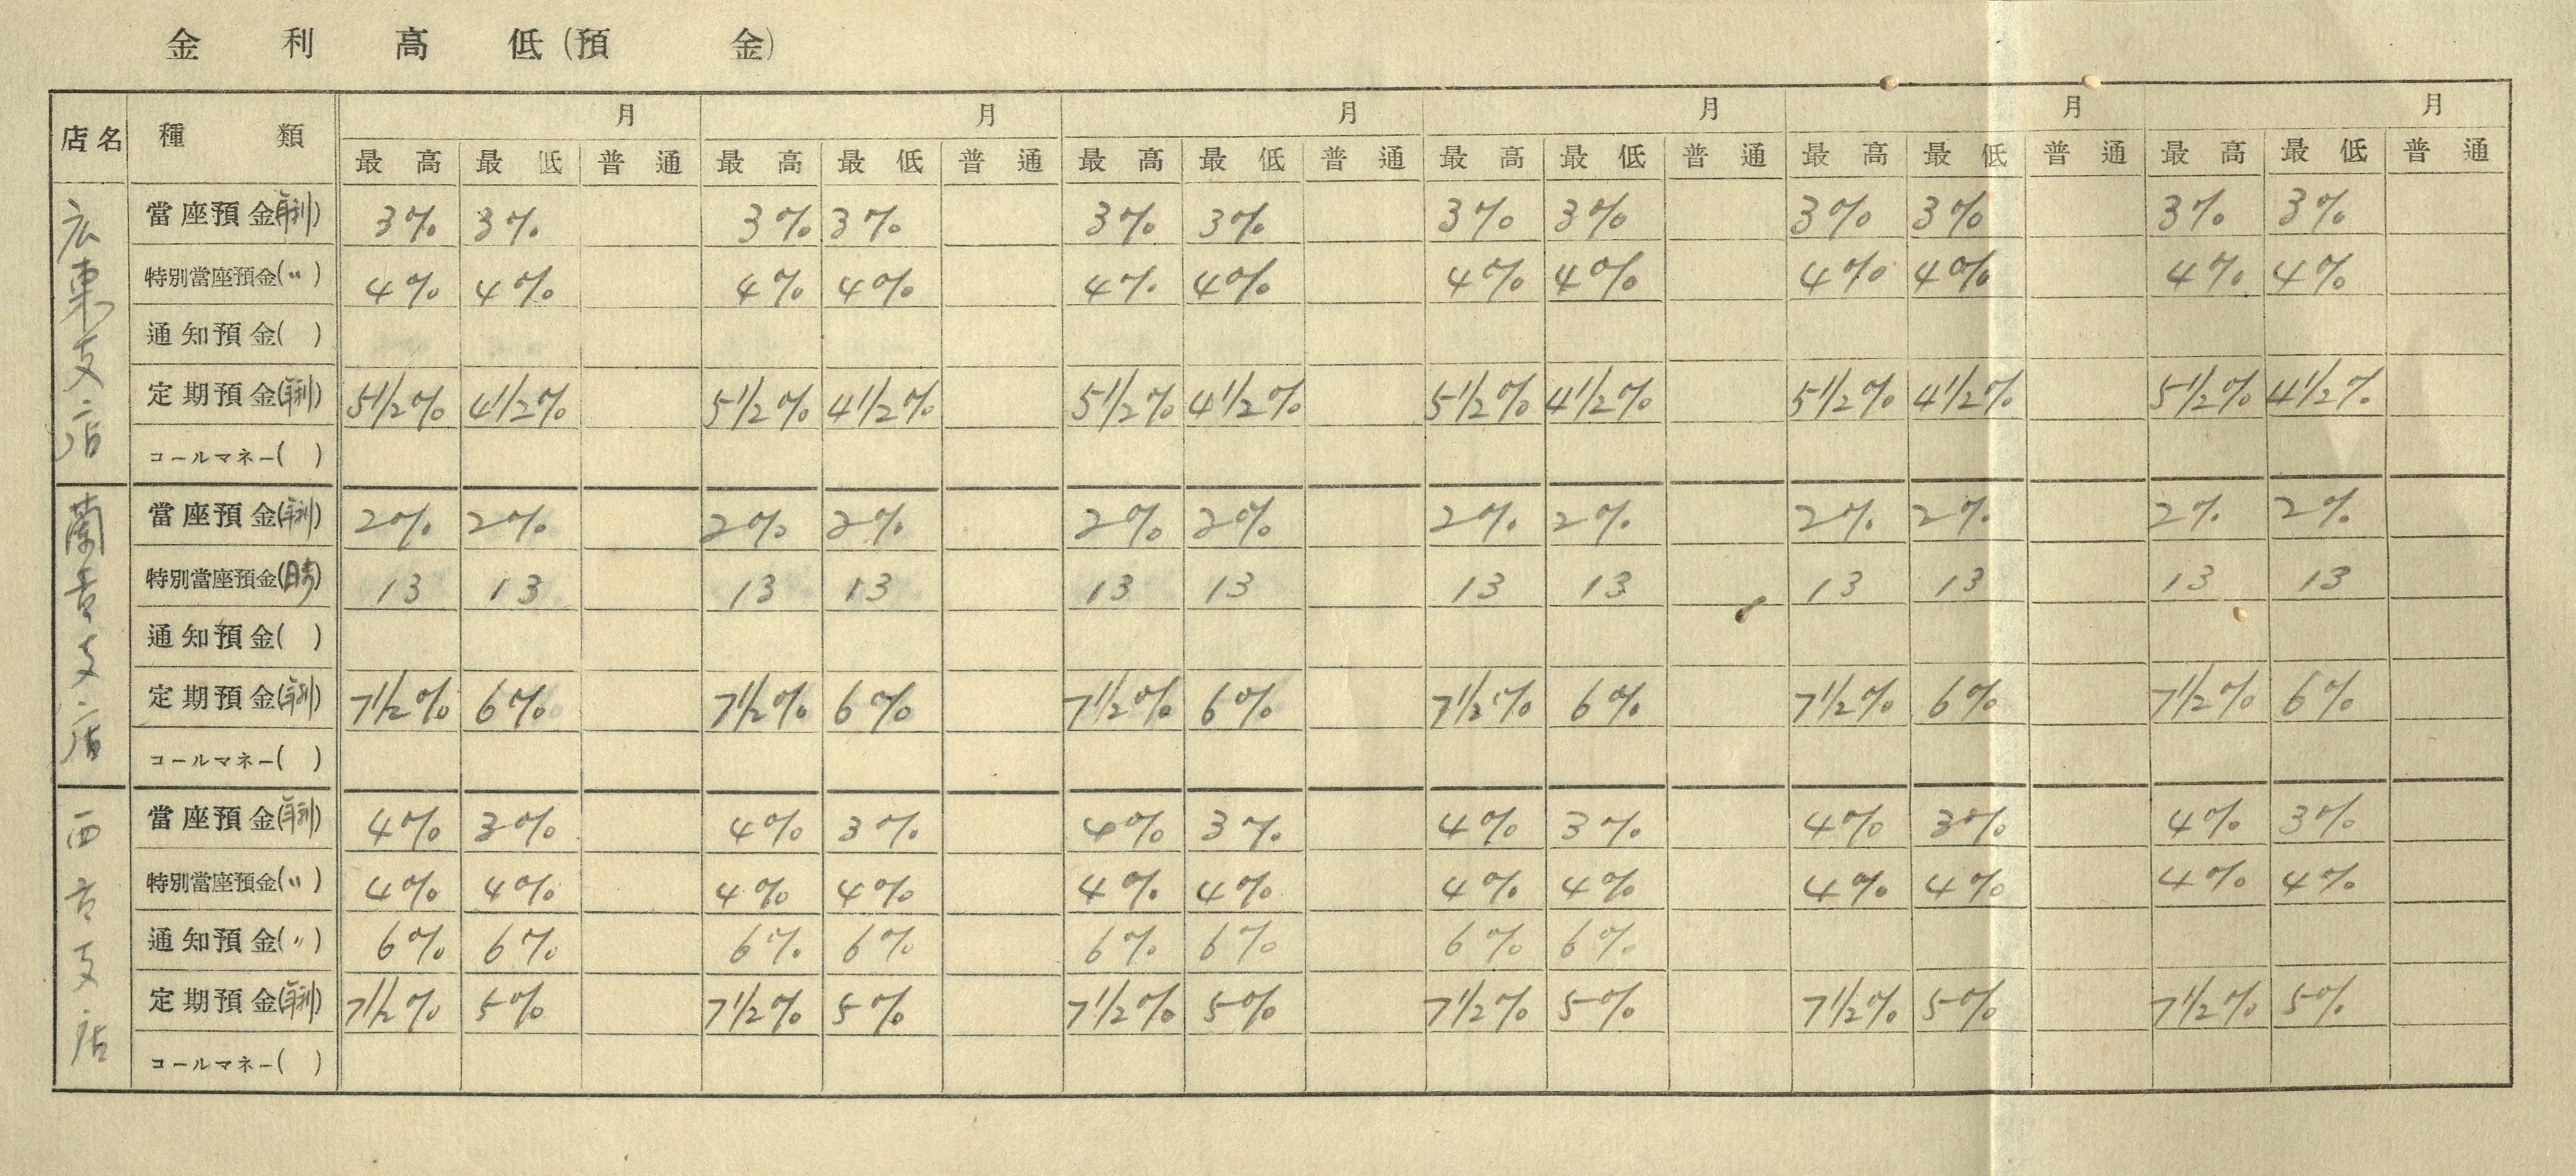 金利高低(預金)
店名 種類 月 月 月 月 月 月
最高 最低 普通 最高 最低 普通 最高 最低 普通 最高 最低 普通 最高 最低 普通 最高 最低 普通
広東支店
當座預金(年利) 3% 3% 3% 3% 3% 3% 3% 3% 3% 3% 3% 3%
特別當座預金(〃) 4% 4% 4% 4% 4% 4% 4% 4% 4% 4% 4% 4%
通知預金( )
定期預金(年利) 5 1/2% 4 1/2% 5 1/2% 4 1/2% 5 1/2% 4 1/2% 5 1/2% 4 1/2% 5 1/2% 4 1/2% 5 1/2% 4 1/2%
コールマネー( )
蘭貢支店
當座預金(年利) 2% 2% 2% 2% 2% 2% 2% 2% 2% 2% 2% 2%
特別當座預金(日歩) 13 13 13 13 13 13 13 13 13 13 13 13
通知預金( )
定期預金(年利) 7 1/2% 6% 7 1/2% 6% 7 1/2% 6% 7 1/2% 6% 7 1/2% 6% 7 1/2% 6%
コールマネー( )
西貢支店
當座預金(年利) 4% 3% 4% 3% 4% 3% 4% 3% 4% 3% 4% 3%
特別當座預金(〃) 4% 4% 4% 4% 4% 4% 4% 4% 4% 4% 4% 4%
通知預金(〃) 6% 6% 6% 6% 6% 6% 6% 6%
定期預金(年利) 7 1/2% 5% 7 1/2% 5% 7 1/2% 5% 7 1/2% 5% 7 1/2% 5% 7 1/2% 5%
コールマネー( )